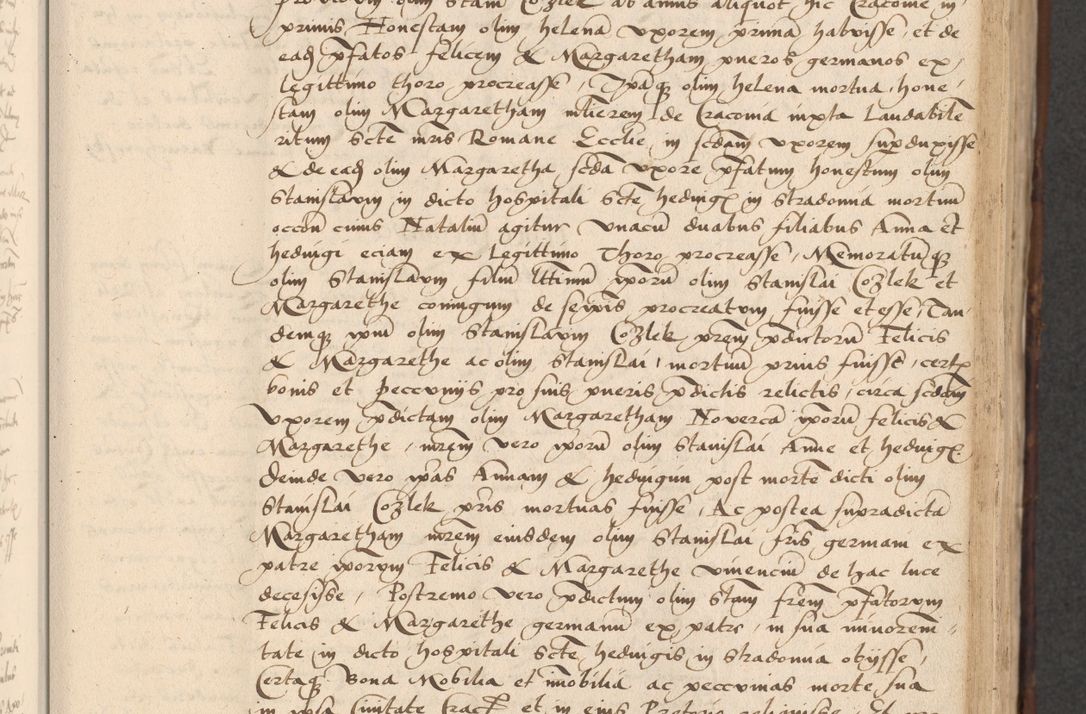 primis Honestam olim helenā vxorem primā habuisse, et de
eadē pfatos felicem & Margaretham pueros germanos ex
legittimo thoro procreasse, Ipāq olim helena mortua, hone
stam olim Margaretham mlierem de Cracouia iuxta Laudabilē
ritum Scte mris Romane Ecclie in scdam vxorem supduxisse
& de eadē olim Margaretha scda vxore pfatum honestum olim
Stanislaum in dicto hospitali Scte heduigz in Stradomia mortuū
cuius Nataliū agitur vnacū duabus filiabus Anna et
heduigi eciam ex Legittimo Thoro procreasse, Memoratūq
olim Stanislaum filiū vltimū iporū olim Stanislai Cozlek et
Margarethe coniugum de seipīs procreatum fuisse et esse, Tan
demq ipm olim Stanislaum Cozlek prem pdictorū Felicis
& Margarethe ac olim Stanislai, mortuū prius fuisse, certz
bonis et peccunijs pro suis pueris pdictis relictis, circa scdam
vxorem pdictam olim Margaretham Nouercā iporū felicis &
Margarethe, mrem vero iporū olim Stanislai Anne et heduigz
Deinde vero ipas Annam & heduigim post mortē dicti olim
Stanislai Cozlek pris mortuas fuisse, Ac postea supradicta
Margaretham mrem eiusdem olim Stanislai fris germani ex
patre iporum Felicis & Margarethe viuenciū de hac luce
decesisse, Postremo vero pdictum olim Stam frem pfatorum
Felicis & Margarethe germanū ex patre, in sua minoreni-
tate in dicto hospitali Scte heduigis in Stradomia obijsse,
Certaq Bona Mobilia et imobilia ac peccunias morte sua
in ipsa Ciuitate Cracz et in eius Pretorio reliquisse,